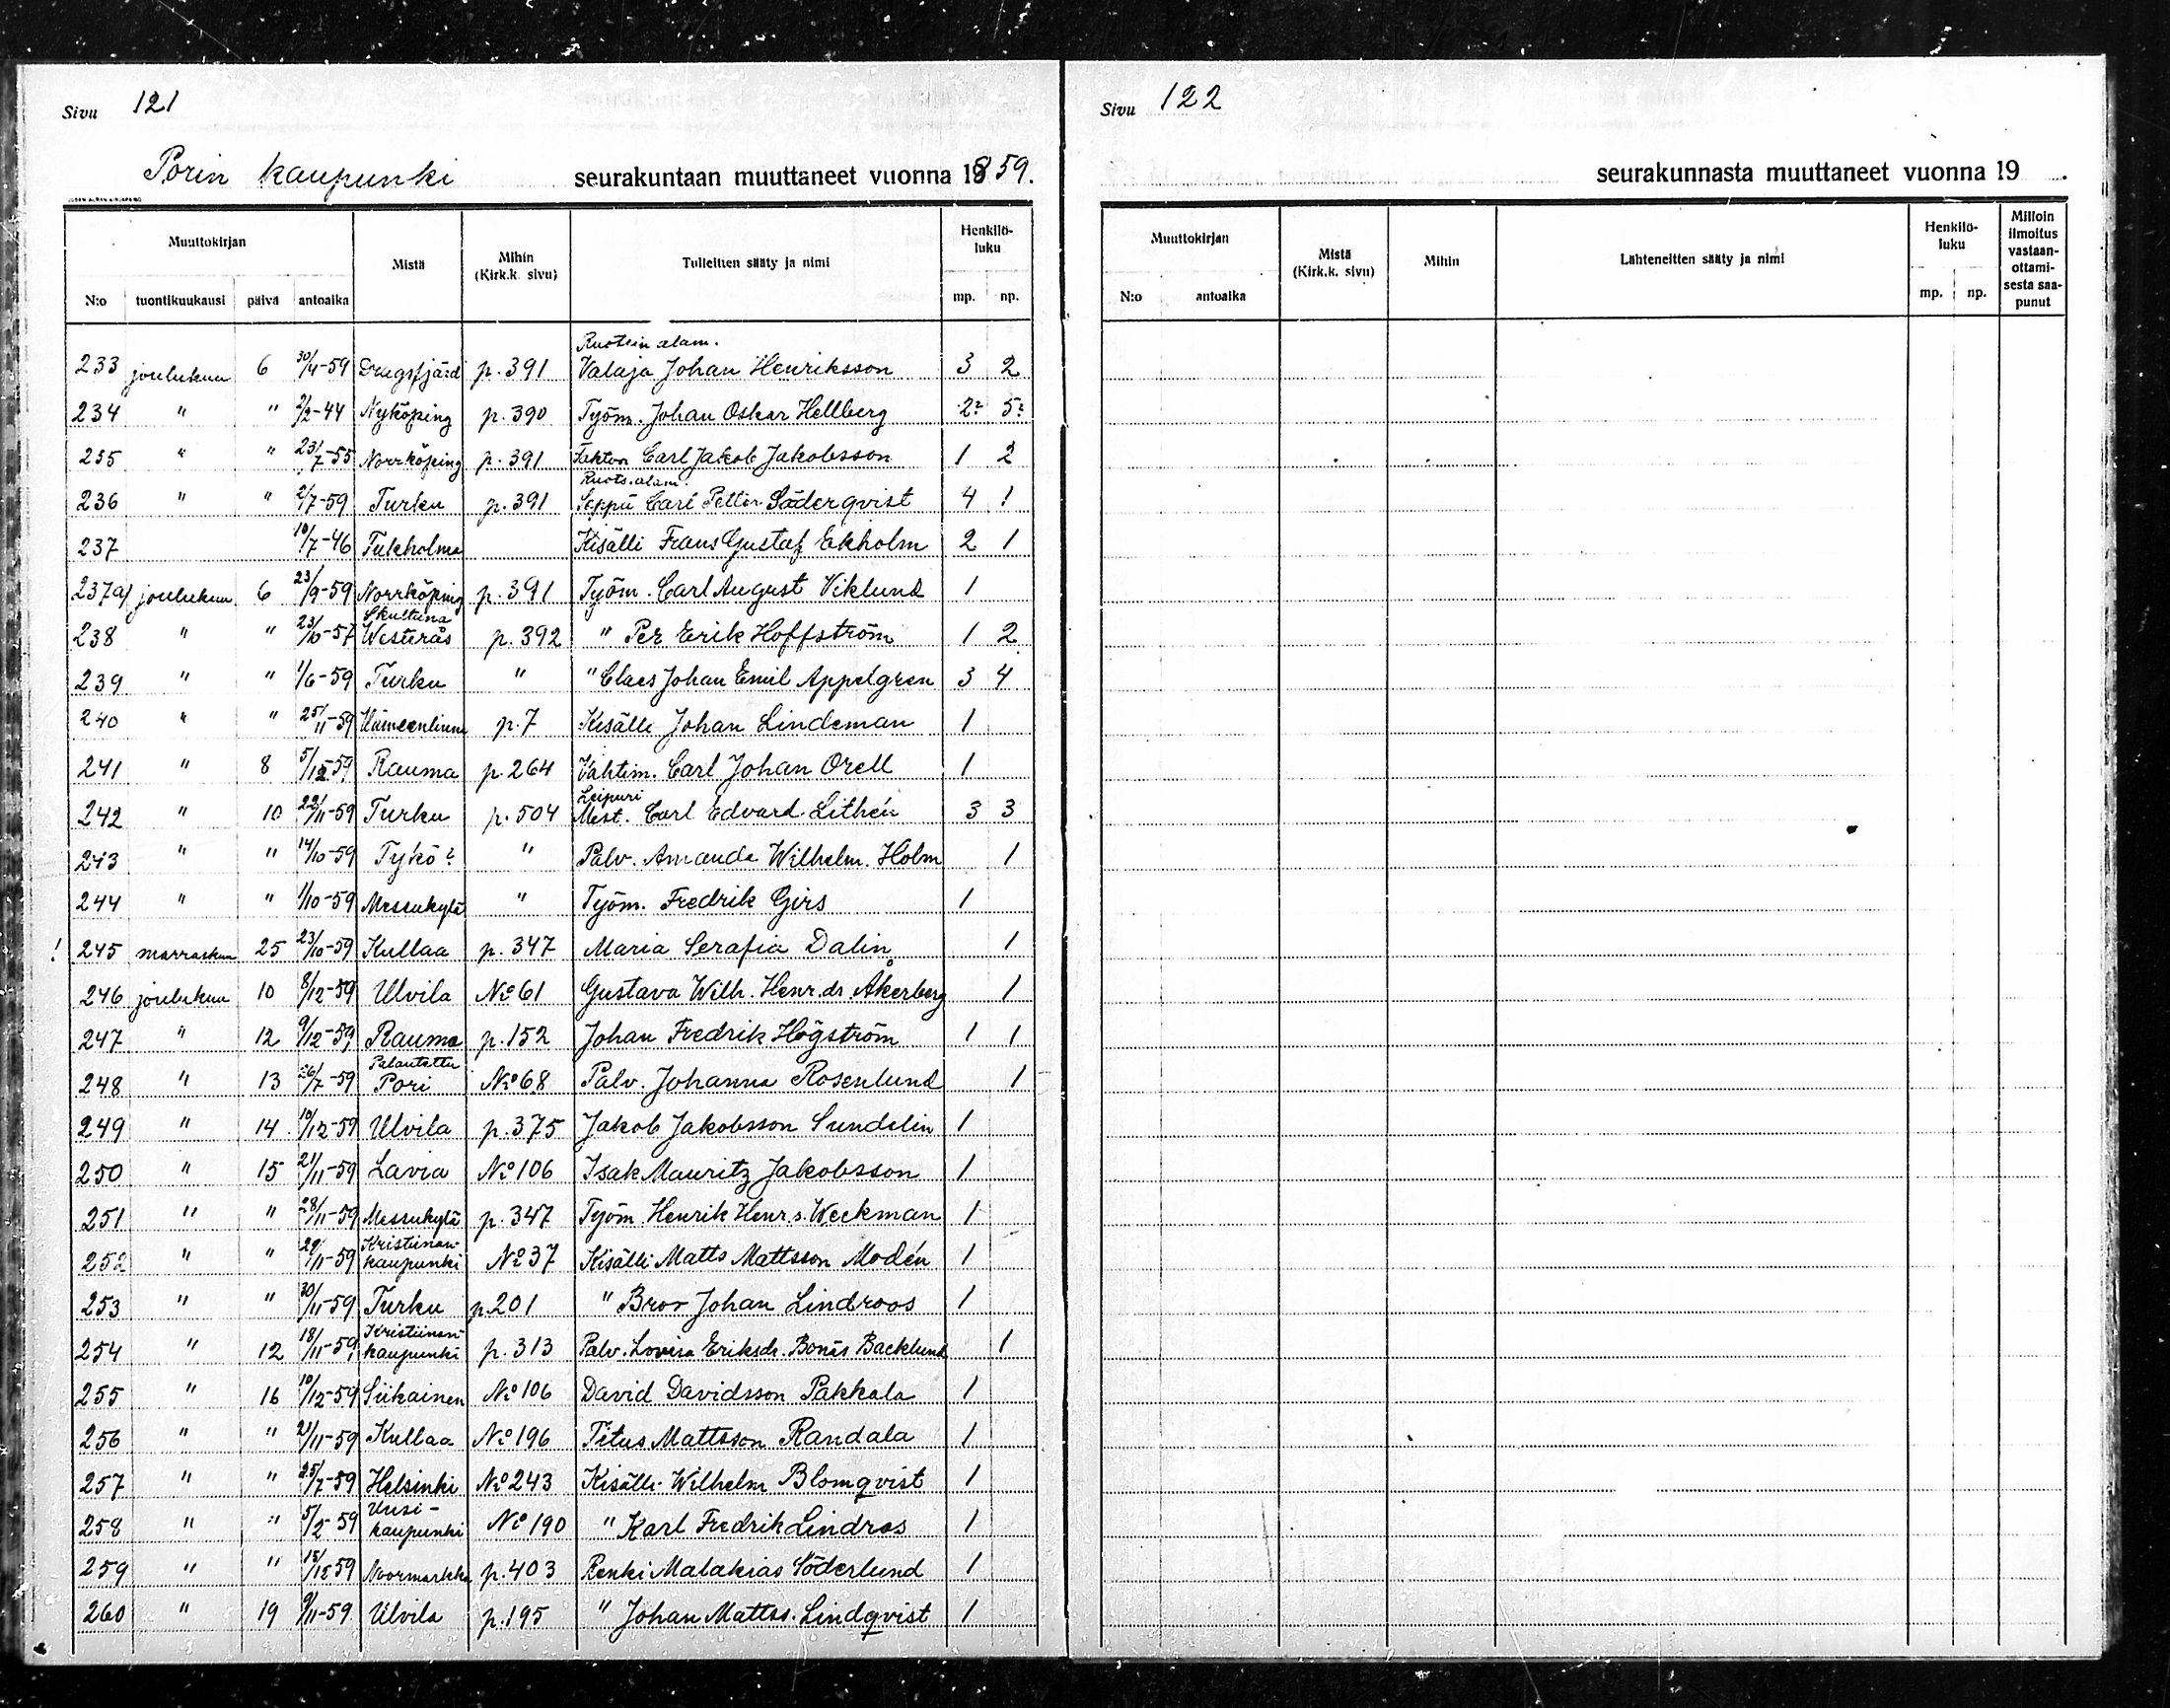 Sivu 121
Porin kaupunki seurakuntaan muuttaneet vuonna 1859.
Muuttokirjan Mistä Mihin (Kirk.k. sivu) Tulleitten sääty ja nimi Henkilöluku
N:o tuontikuukausi päivä antoaika mp. np.
Ruotsin alam.
233 joulukuu 6 30/4-59 Dragsfjärd p. 391 Valaja Johan Henriksson 3 2
234 " " 2/2-44 Nyköping p. 390 Työm. Johan Oskar Hellberg 2? 5?
235 " " 23/7-55 Norrköping p. 391 Faktor Carl Jakob Jakobsson 1 2
Ruots. alam.
236 " " 2/7-59 Turku p. 391 Seppä Carl Petter Söderqvist 4 1
237 10/7-46 Tukholma Kisälli Frans Gustaf Ekholm 2 1
237a/ joulukuu 6 23/9-59 Norrköping p. 391 Työm. Carl August Viklund 1
Skultuna
238 " " 23/10-57 Westerås p. 392 " Per Erik Hoffström 1 2
239 " " 1/6-59 Turku " " Claes Johan Emil Appelgren 3 4
240 " " 25/11-59 Hämeenlinna p. 7 Kisälli Johan Lindeman 1
241 " 8 5/12-59 Rauma p. 264 Vahtim. Carl Johan Orell 1
Leipuri
242 " 10 22/11-59 Turku p. 504 Mest. Carl Edvard Lithén 3 3
243 " " 14/10-59 Tykö? " Palv. Amanda Wilhelm. Holm 1
244 " " 1/10-59 Messukylä " Työm. Fredrik Girs 1
! 245 marraskuu 25 23/10-59 Kullaa p. 347 Maria Serafia Dalin 1
246 joulukuu 10 8/12-59 Ulvila No 61 Gustava Wilh. Henr.dr. Åkerberg 1
247 " 12 9/12-59 Rauma p. 152 Johan Fredrik Högström 1 1
Palautettu
248 " 13 26/7-59 Pori No 68 Palv. Johanna Rosenlund 1
249 " 14 10/12-59 Ulvila p. 375 Jakob Jakobsson Sundelin 1
250 " 15 21/11-59 Lavia No 106 Isak Mauritz Jakobsson 1
251 " " 28/11-59 Messukylä p. 347 Työm. Henrik Henr.s. Weckman 1
Kristiinan-
252 " " 29/11-59 kaupunki No 37 Kisälli Matts Mattsson Modén 1
253 " " 30/11-59 Turku p. 201 " Bror Johan Lindroos 1
Kristiinan-
254 " 12 18/11-59 kaupunki p. 313 Palv. Lovisa Eriksdr. Bonäs Backlund 1
255 " 16 10/12-59 Siikainen No 106 David Davidsson Pakkala 1
256 " " 21/11-59 Kullaa No 196 Titus Mattsson Randala 1
257 " " 25/7-59 Helsinki No 243 Kisälli Wilhelm Blomqvist 1
Uusi-
258 " " 5/2-59 kaupunki No 190 " Karl Fredrik Lindros 1
259 " " 15/12-59 Noormarkku p. 403 Renki Malakias Söderlund 1
260 " 19 9/11-59 Ulvila p. 195 " Johan Mattss. Lindqvist 1
Sivu 122
seurakunnasta muuttaneet vuonna 19 .
Muuttokirjan Mistä (Kirk.k. sivu) Mihin Lähteneitten sääty ja nimi Henkilöluku Milloin ilmoitus vastaanottamisesta saapunut
N:o antoaika mp. np.